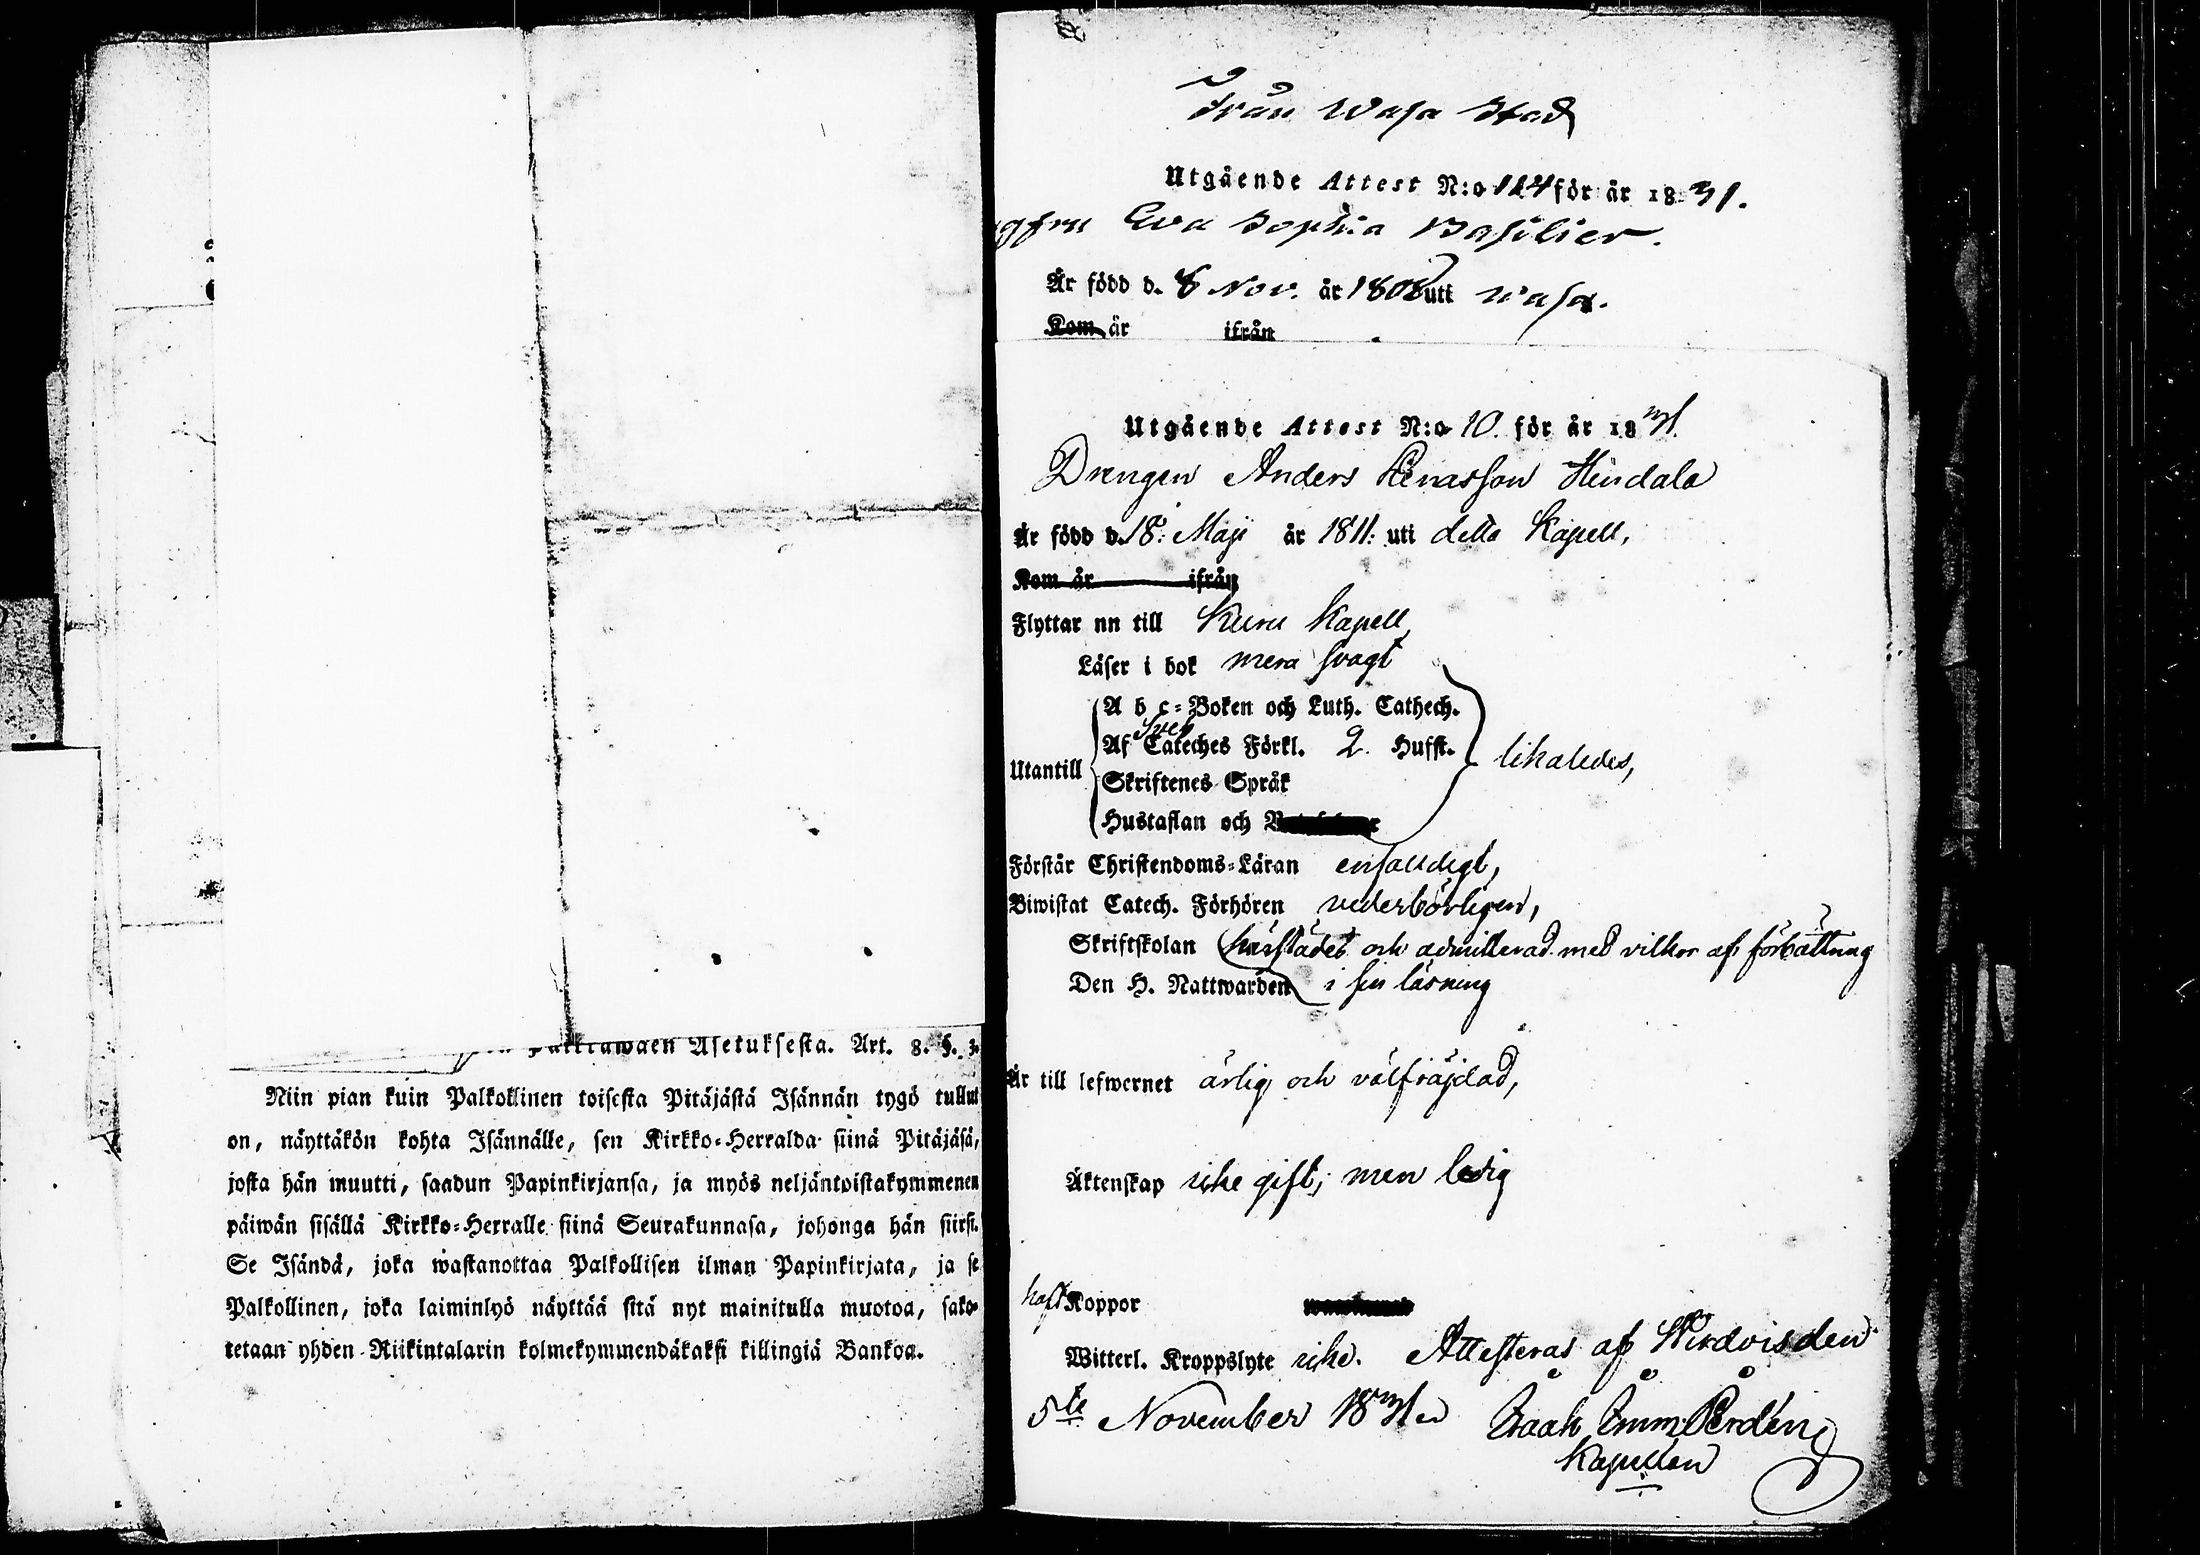 Palkkawaen Asetuksesta. Art. 8. §. 3.
Niin pian kuin Palkollinen toisesta Pitäjästä Isännän tygö tullut
on, näyttäkön kohta Isännälle, sen Kirkko-Herralda siinä Pitäjäsä,
josta hän muutti, saadun Papinkirjansa, ja myös neljäntoistakymmenen
päiwän sisällä Kirkko-Herralle siinä Seurakunnasa, johonga hän siirst.
Se Isändä, joka wastanottaa Palkollisen ilman Papinkirjata, ja se
Palkollinen, joka laiminlyö näyttää sitä nyt mainitulla muotoa, sako-
tetaan yhden Riikintalarin kolmekymmendäkaksi killingiä Bankoa.
Från Wasa Stad
Utgående Attest N:o 124 för år 1831.
gfru Eva Sophia Basilier.
Är född d. 8 Nov. år 1808 uti Wasa.
Kom år ifrån
Utgående Attest N:o 10. för år 1831.
Drengen Anders Hindala
Är född d. 18: Maji år 1811: uti detta Kapell,
Kom år ifrån
Flyttar nu till Kuru Kapell,
Läser i bok mera svagt
A b c-Boken och Luth. Cathech.
Sveb
Af Cateches Förkl. 2. Hufst.
Utantill likaledes,
Skriftenes Språk
Hustaflan och
Förstår Christendoms-Läran enfalldigt,
Biwistat Catech. Förhören vederbörligen,
Skriftskolan härstädes och admitterad med vilkor af förbättring
Den H. Nattwarden i sin läsning
Är till lefwernet ärlig och välfräjdad,
Äktenskap icke gift; men ledig
haft Koppor
Witterl. Kroppslyte icke. Attesteras af Wirdois den
5te November 1831 Isaak Imm.
Kapellan